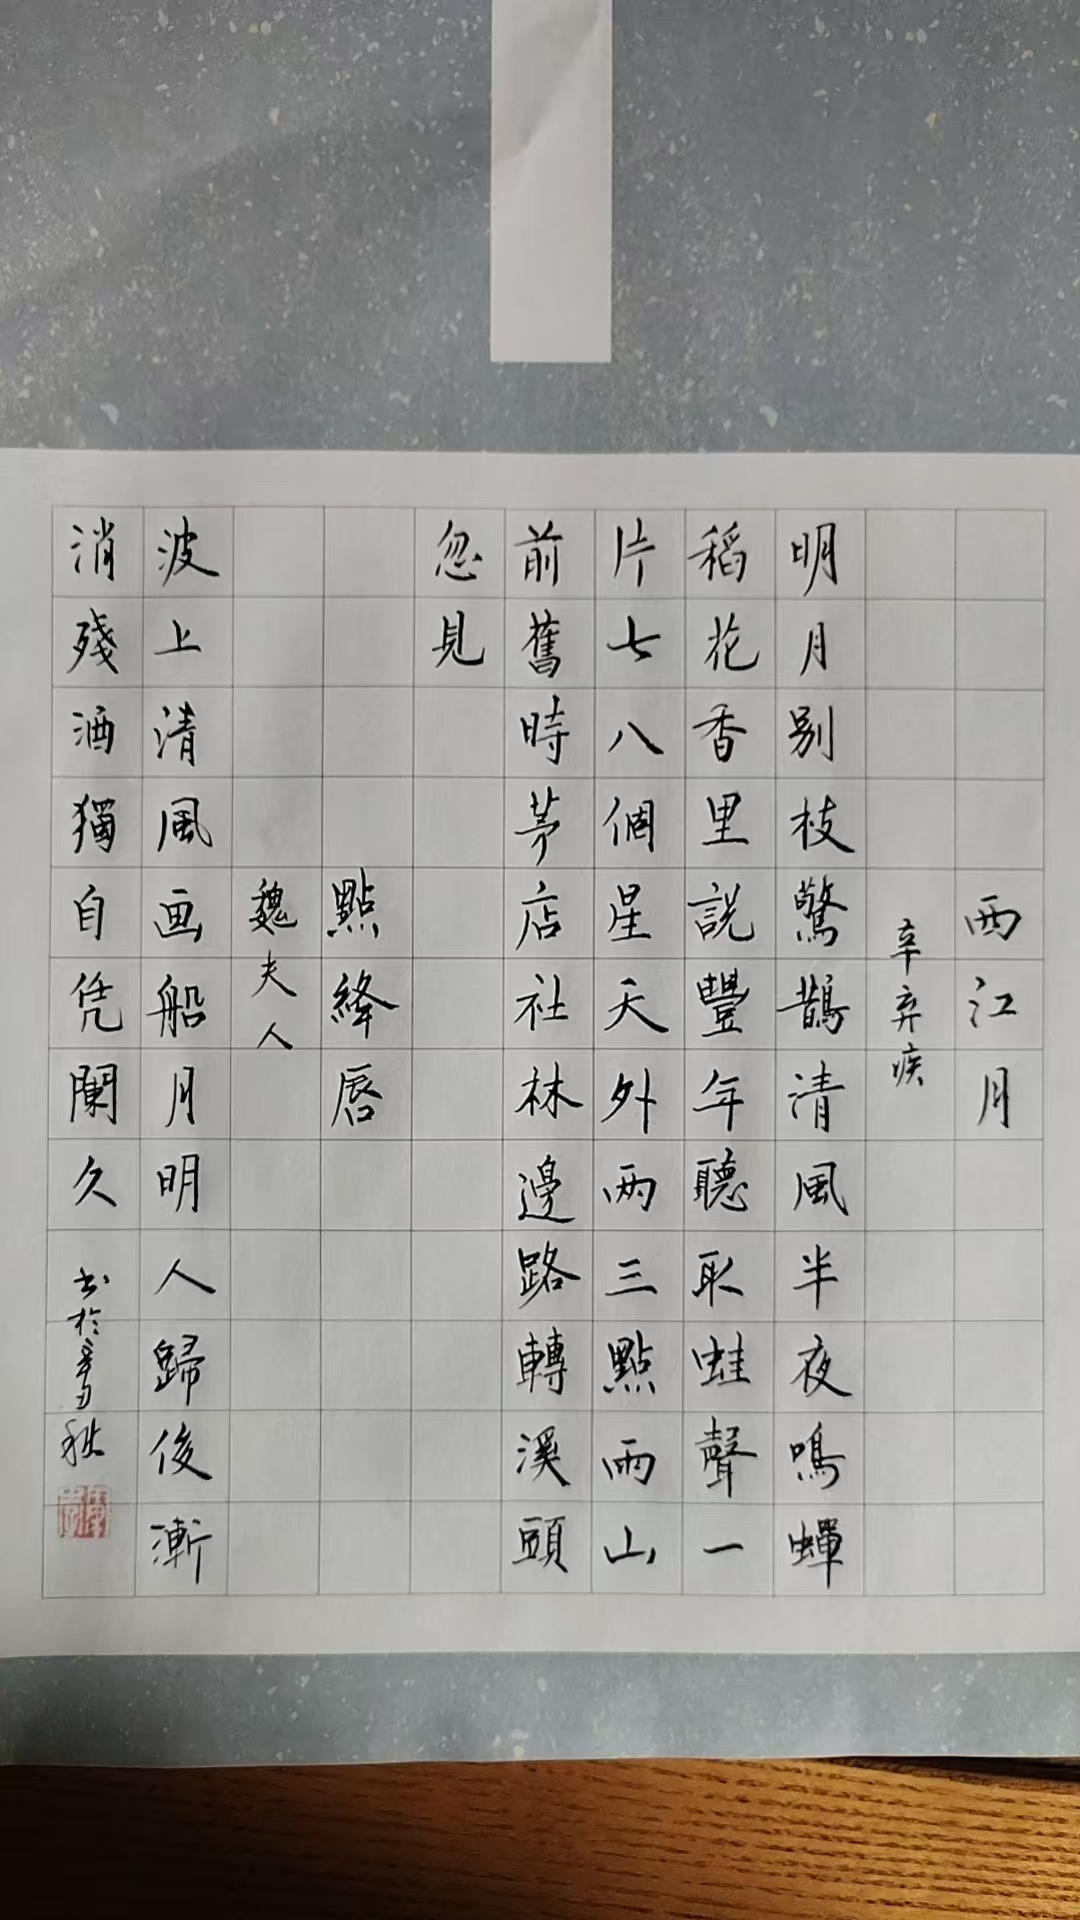 西江月
辛弃疾
明月别枝驚鵲清風半夜鳴蟬
稻花香里説豐年聽取蛙聲一
片七八個星天外兩三點雨山
前舊時茅店社林邊路轉溪頭
忽見
點絳唇
魏夫人
波上清風画船月明人歸後漸
消殘酒獨自凭闌久
書於辛丑秋